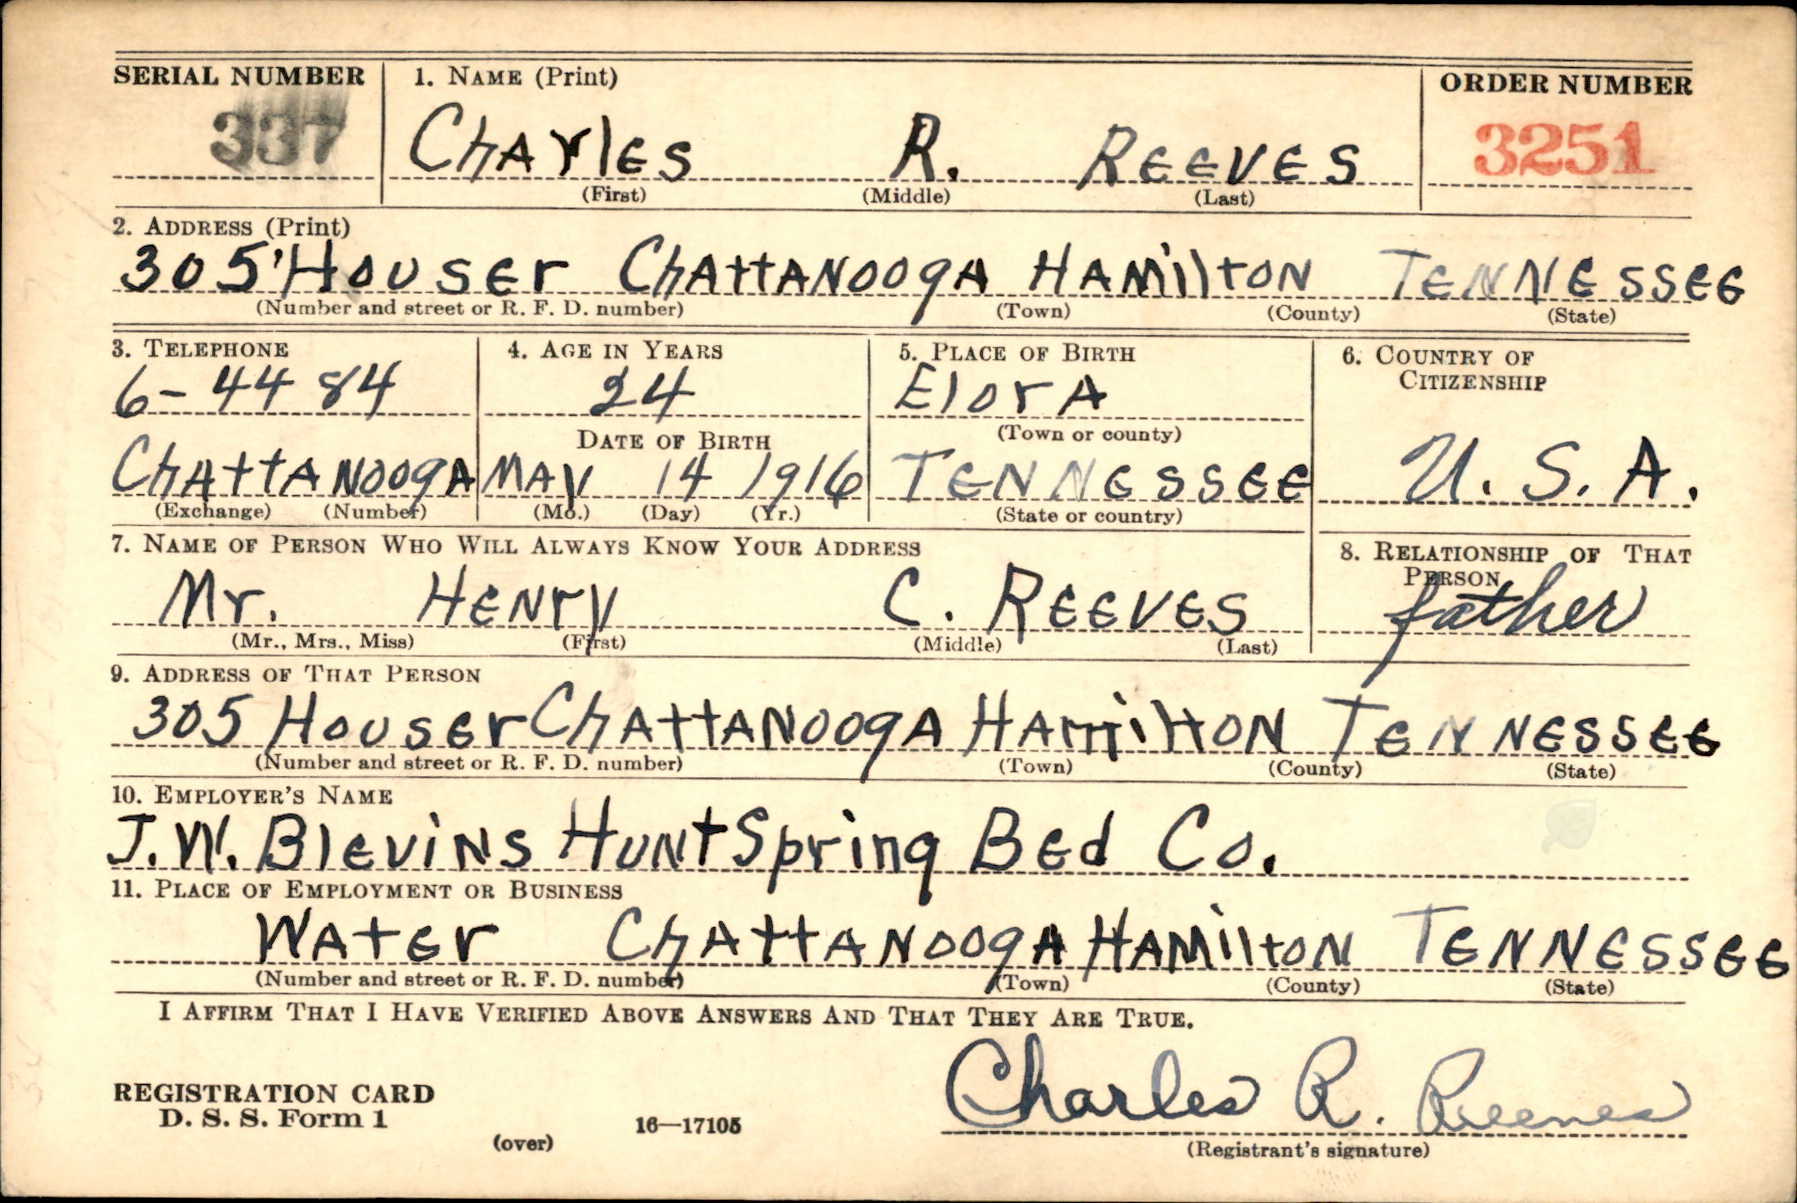 SERIAL NUMBER 1. NAME (Print) ORDER NUMBER
337 CHArlES R. REEVES 3251
(First) (Middle) (Last)
2. ADDRESS (Print)
305 HousEr CHAttANOOgA HAMiltON TENNESSEE
(Number and street or R. F. D. number) (Town) (County) (State)
3. TELEPHONE 4. AGE IN YEARS 5. PLACE OF BIRTH 6. COUNTRY OF CITIZENSHIP
6-4484 24 ElorA
DATE OF BIRTH (Town or county)
CHAttANOOgA MAy 14 1916 TENNESSEE U. S. A.
(Exchange) (Number) (Mo.) (Day) (Yr.) (State or country)
7. NAME OF PERSON WHO WILL ALWAYS KNOW YOUR ADDRESS 8. RELATIONSHIP OF THAT PERSON
Mr. HENry C. REEVES father
(Mr., Mrs., Miss) (First) (Middle) (Last)
9. ADDRESS OF THAT PERSON
305 HousEr CHAttANOOgA HAmiltON TENNESSEE
(Number and street or R. F. D. number) (Town) (County) (State)
10. EMPLOYER'S NAME
J. W. BlEviNS HuNt Spring BEd Co.
11. PLACE OF EMPLOYMENT OR BUSINESS
WAtEr CHAttANOOgA HAMiltON TENNESSEE
(Number and street or R. F. D. number) (Town) (County) (State)
I AFFIRM THAT I HAVE VERIFIED ABOVE ANSWERS AND THAT THEY ARE TRUE.
Charles R. Reeves
REGISTRATION CARD
D. S. S. Form 1
(over) 16—17105 (Registrant's signature)